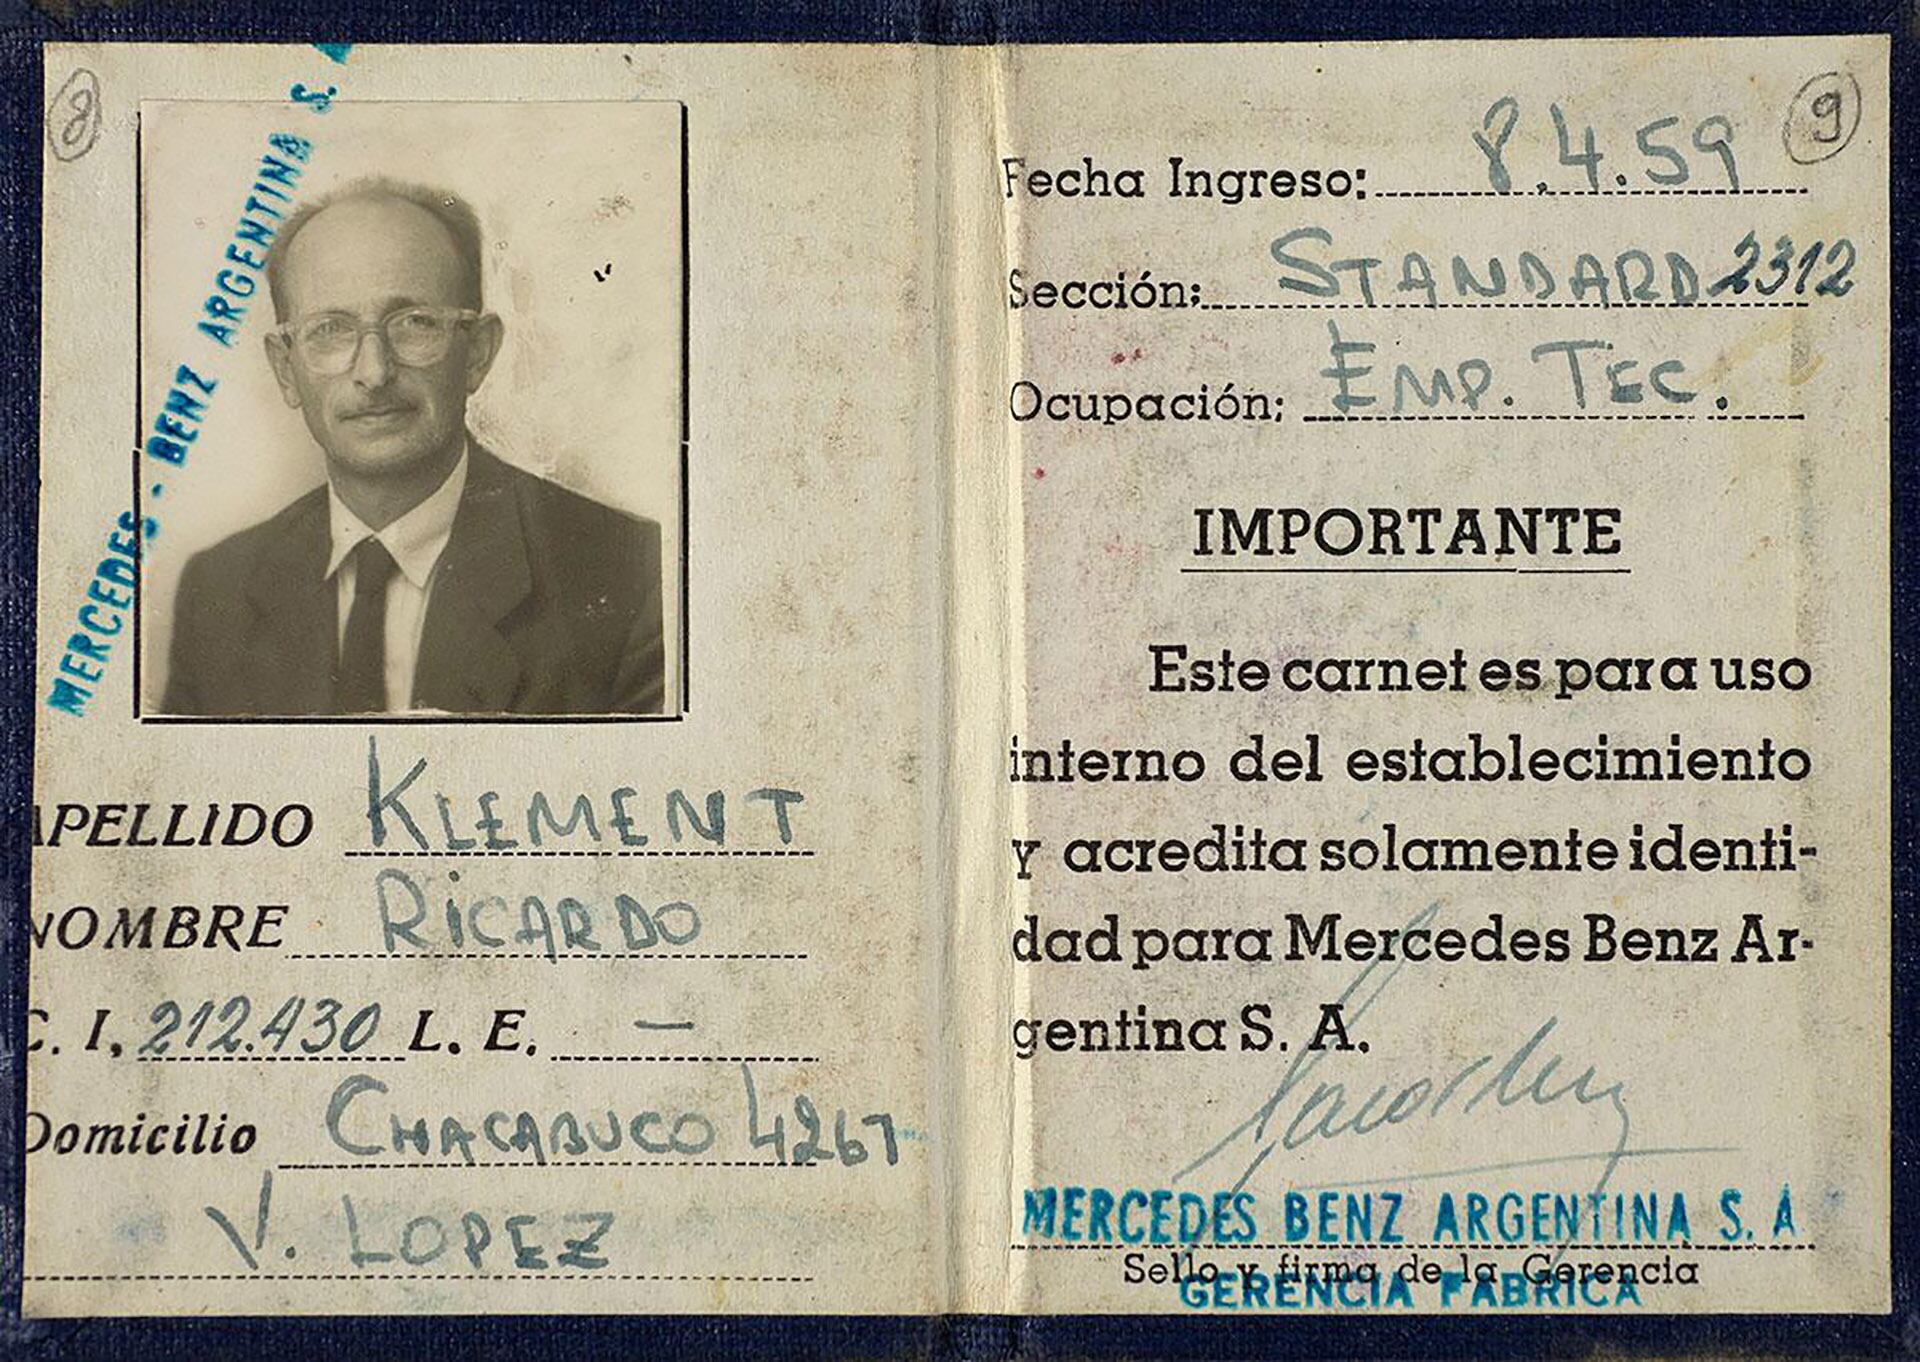 8
MERCEDES - BENZ ARGENTINA S.
APELLIDO KLEMENT
NOMBRE RICARDO
C. I. 212.430 L. E. —
Domicilio CHACABUCO 4267
V. LOPEZ
9
Fecha Ingreso: 8.4.59
Sección: STANDARD 2312
Ocupación: EMP. TEC.
IMPORTANTE
Este carnet es para uso
interno del establecimiento
y acredita solamente identi-
dad para Mercedes Benz Ar-
gentina S. A.
MERCEDES BENZ ARGENTINA S. A
Sello y firma de la Gerencia
GERENCIA FABRICA